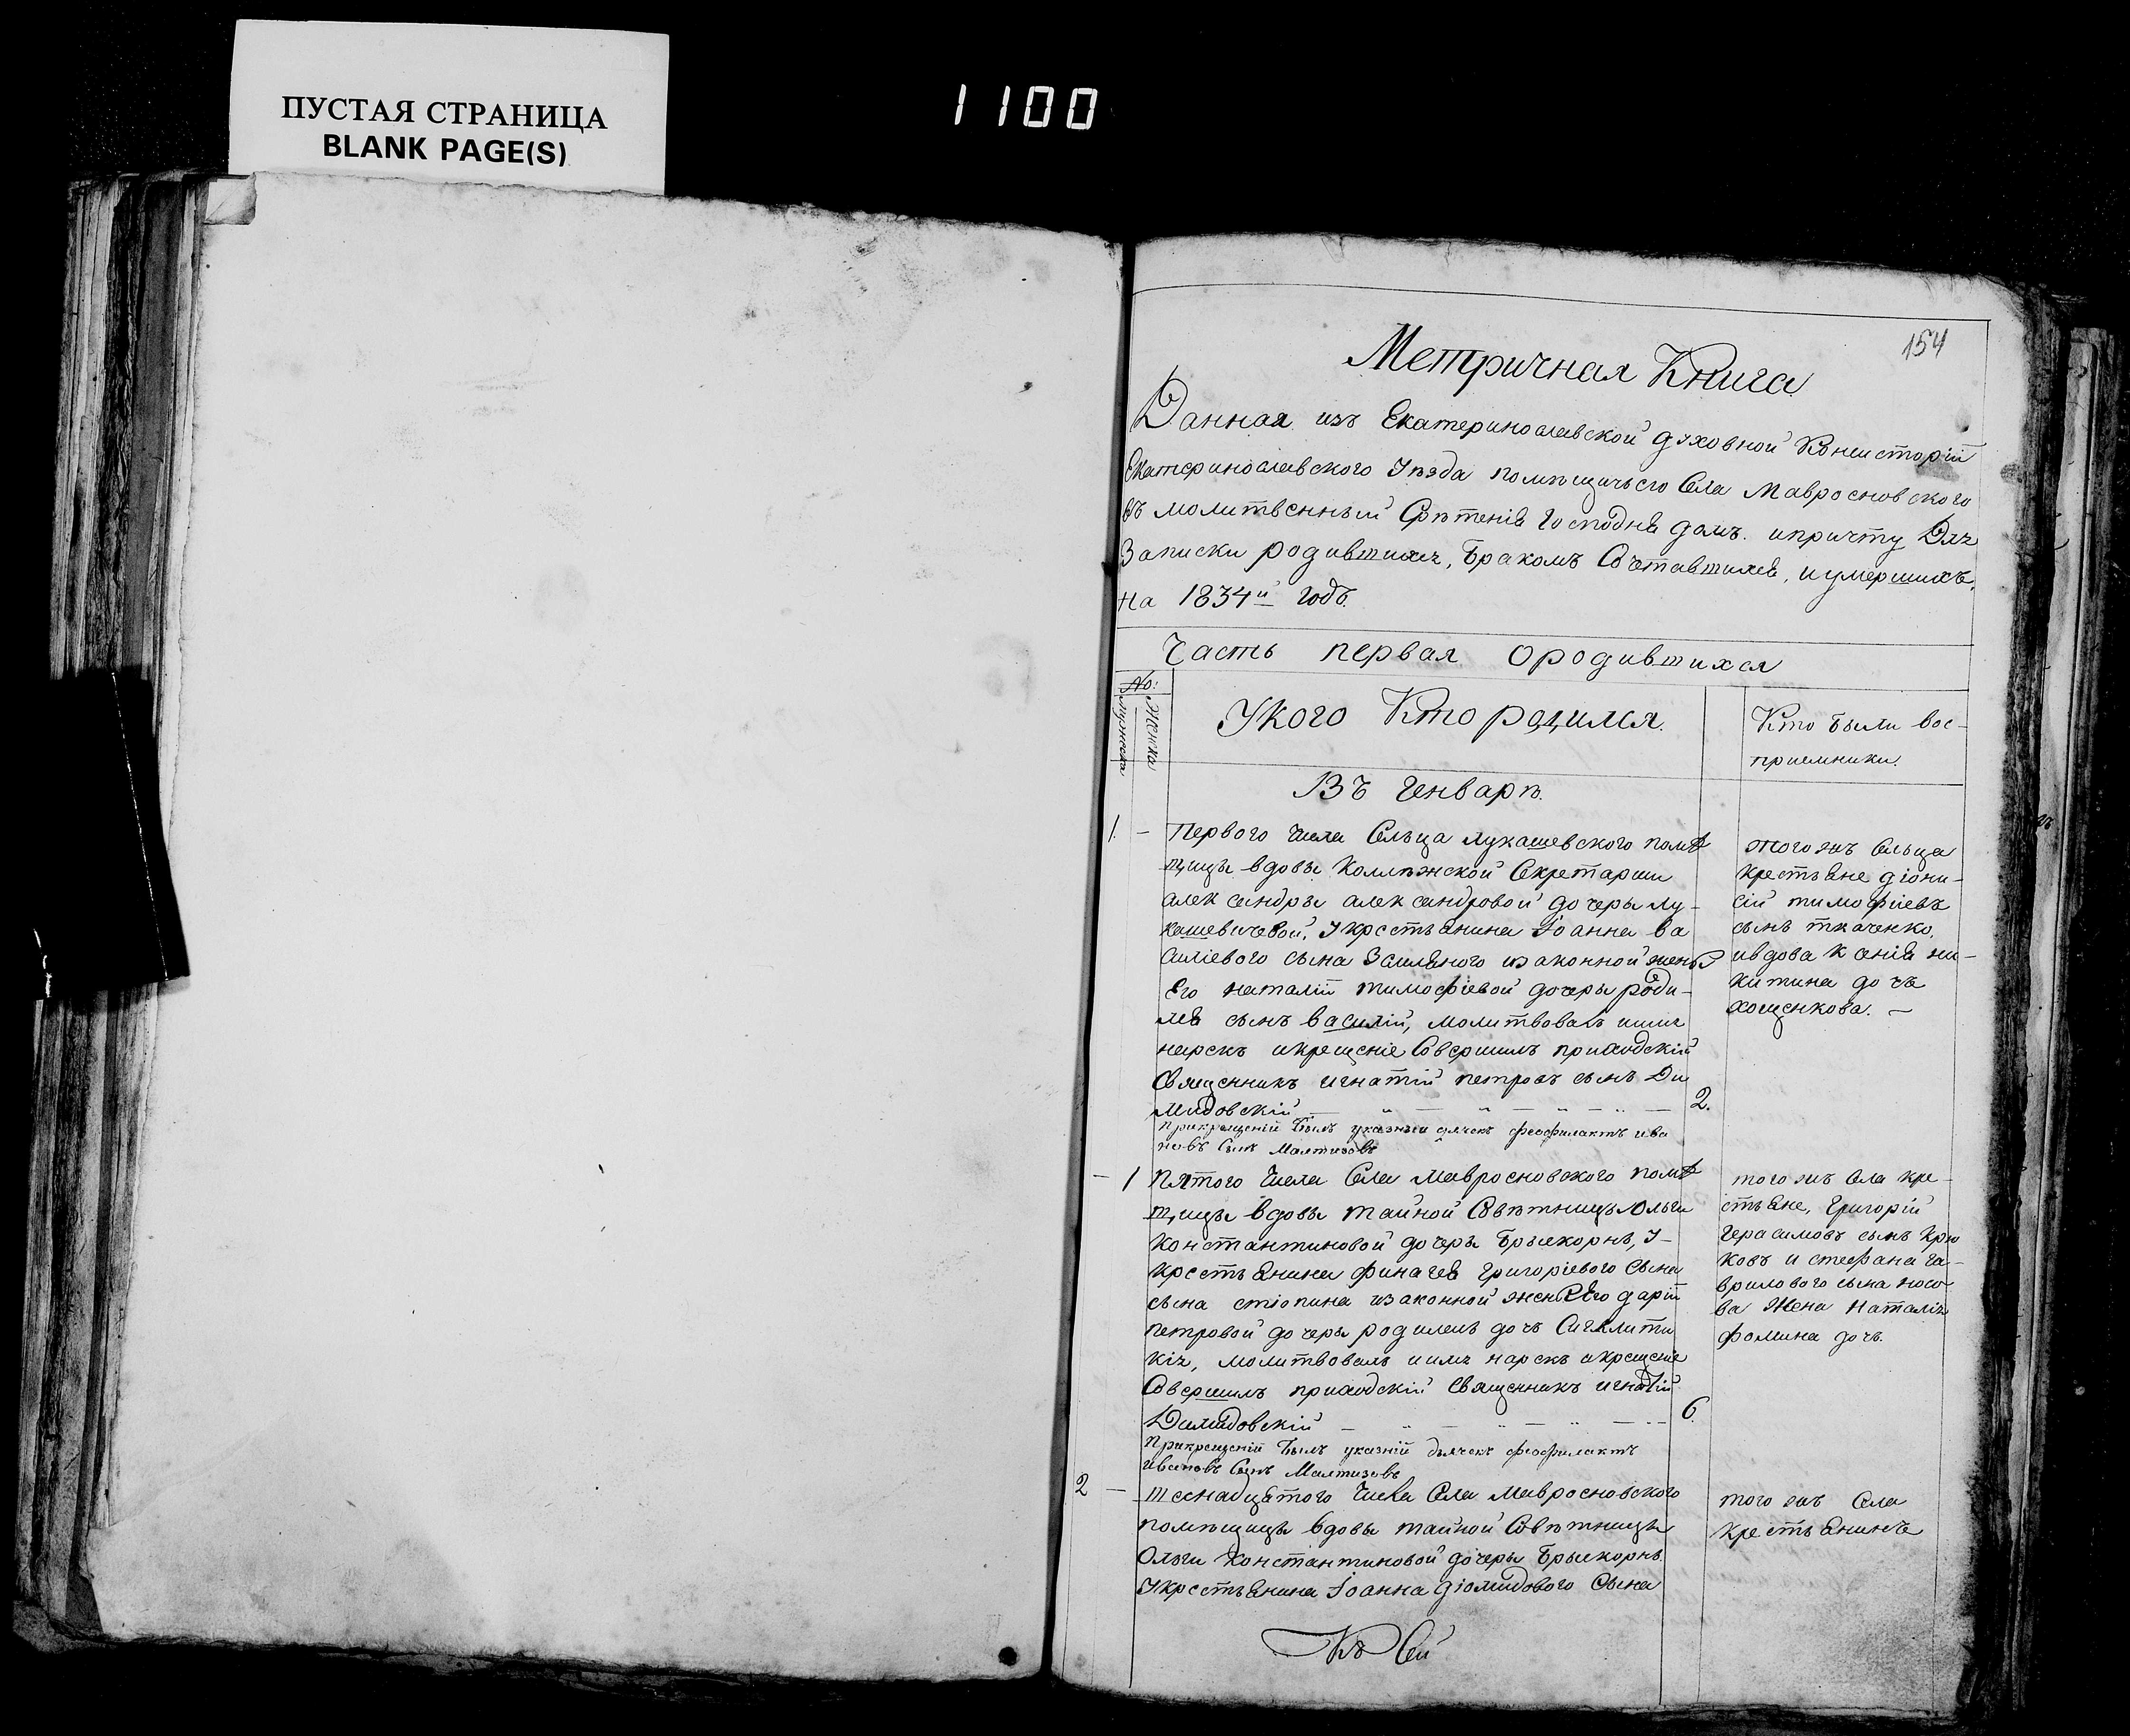 ПУСТАЯ СТРАНИЦА
BLANK PAGE(S)
1100
154
Метричная Книга
Данная изъ Екатеринославской духовной Консисторіи
Екатеринославского Уѣзда помѣщичьего Села Мавросновского
въ молитвенный Срѣтенія Господня домъ. и причту Для
Записки родившихся, бракомъ Сочетавшихся, и умершихъ,
на 1834й годъ.
Часть первая о родившихся
No:
Мужеска
Женска
У кого Кто родился.
Кто были вос-
приемники.
Въ Генварѣ.
1. – Первого Числа Сельца Лукашевского помѣ
щицы вдовы Коллѣжской Секретарши
александры александровой дочеры лу-
кашевичевой, У крестьянина Іоанна ва
силіевого сына изаконной жены
Его наталіи тимофіевой дочеры роди-
лся сынъ василій, молитвовалъ и имя
нарекъ и крещеніе Совершилъ приходскій
Священникъ игнатій петровъ сынъ Ди
мидовскій 2.
При крещеніи былъ указный дячекъ феофилактъ ива
новъ Сынъ
того жъ сельца
крестьяне діони-
сій тимофіевъ
сынъ ткаченко,
и вдова ксенія ни-
китина дочь
хощенкова. –
– 1 Пятого Числа Села Мавросновского помѣ
щицы вдовы тайной Совѣтницы Ольги
Константиновой дочеры Брискорнъ, У
крестьянина Григоріевого Сына
сына стіопина изаконной жены Его даріи
петровой дочеры родилась дочь Сигклити
кія, молитвовалъ и имя нарекъ и крещеніе
Совершилъ приходскій Священникъ игнатій
Димидовскій 6.
При крещеніи былъ указній дьячекъ феофилактъ
ивановъ Сынъ
того жъ Села кре-
стьяне, Григорій
Герасимовъ сынъ Крю
ковъ и стефана га-
врилового сына носо-
ва Жена Наталія
фомина дочь.
2 – шеснадцятого Числа Села Мавросновского
помѣщицы вдовы тайной Совѣтницы
Ольги Константиновой дочеры Брискорнъ.
У крестьянина Іоанна діомидового Сына
того жъ Села
крестьянинъ
Къ Сей